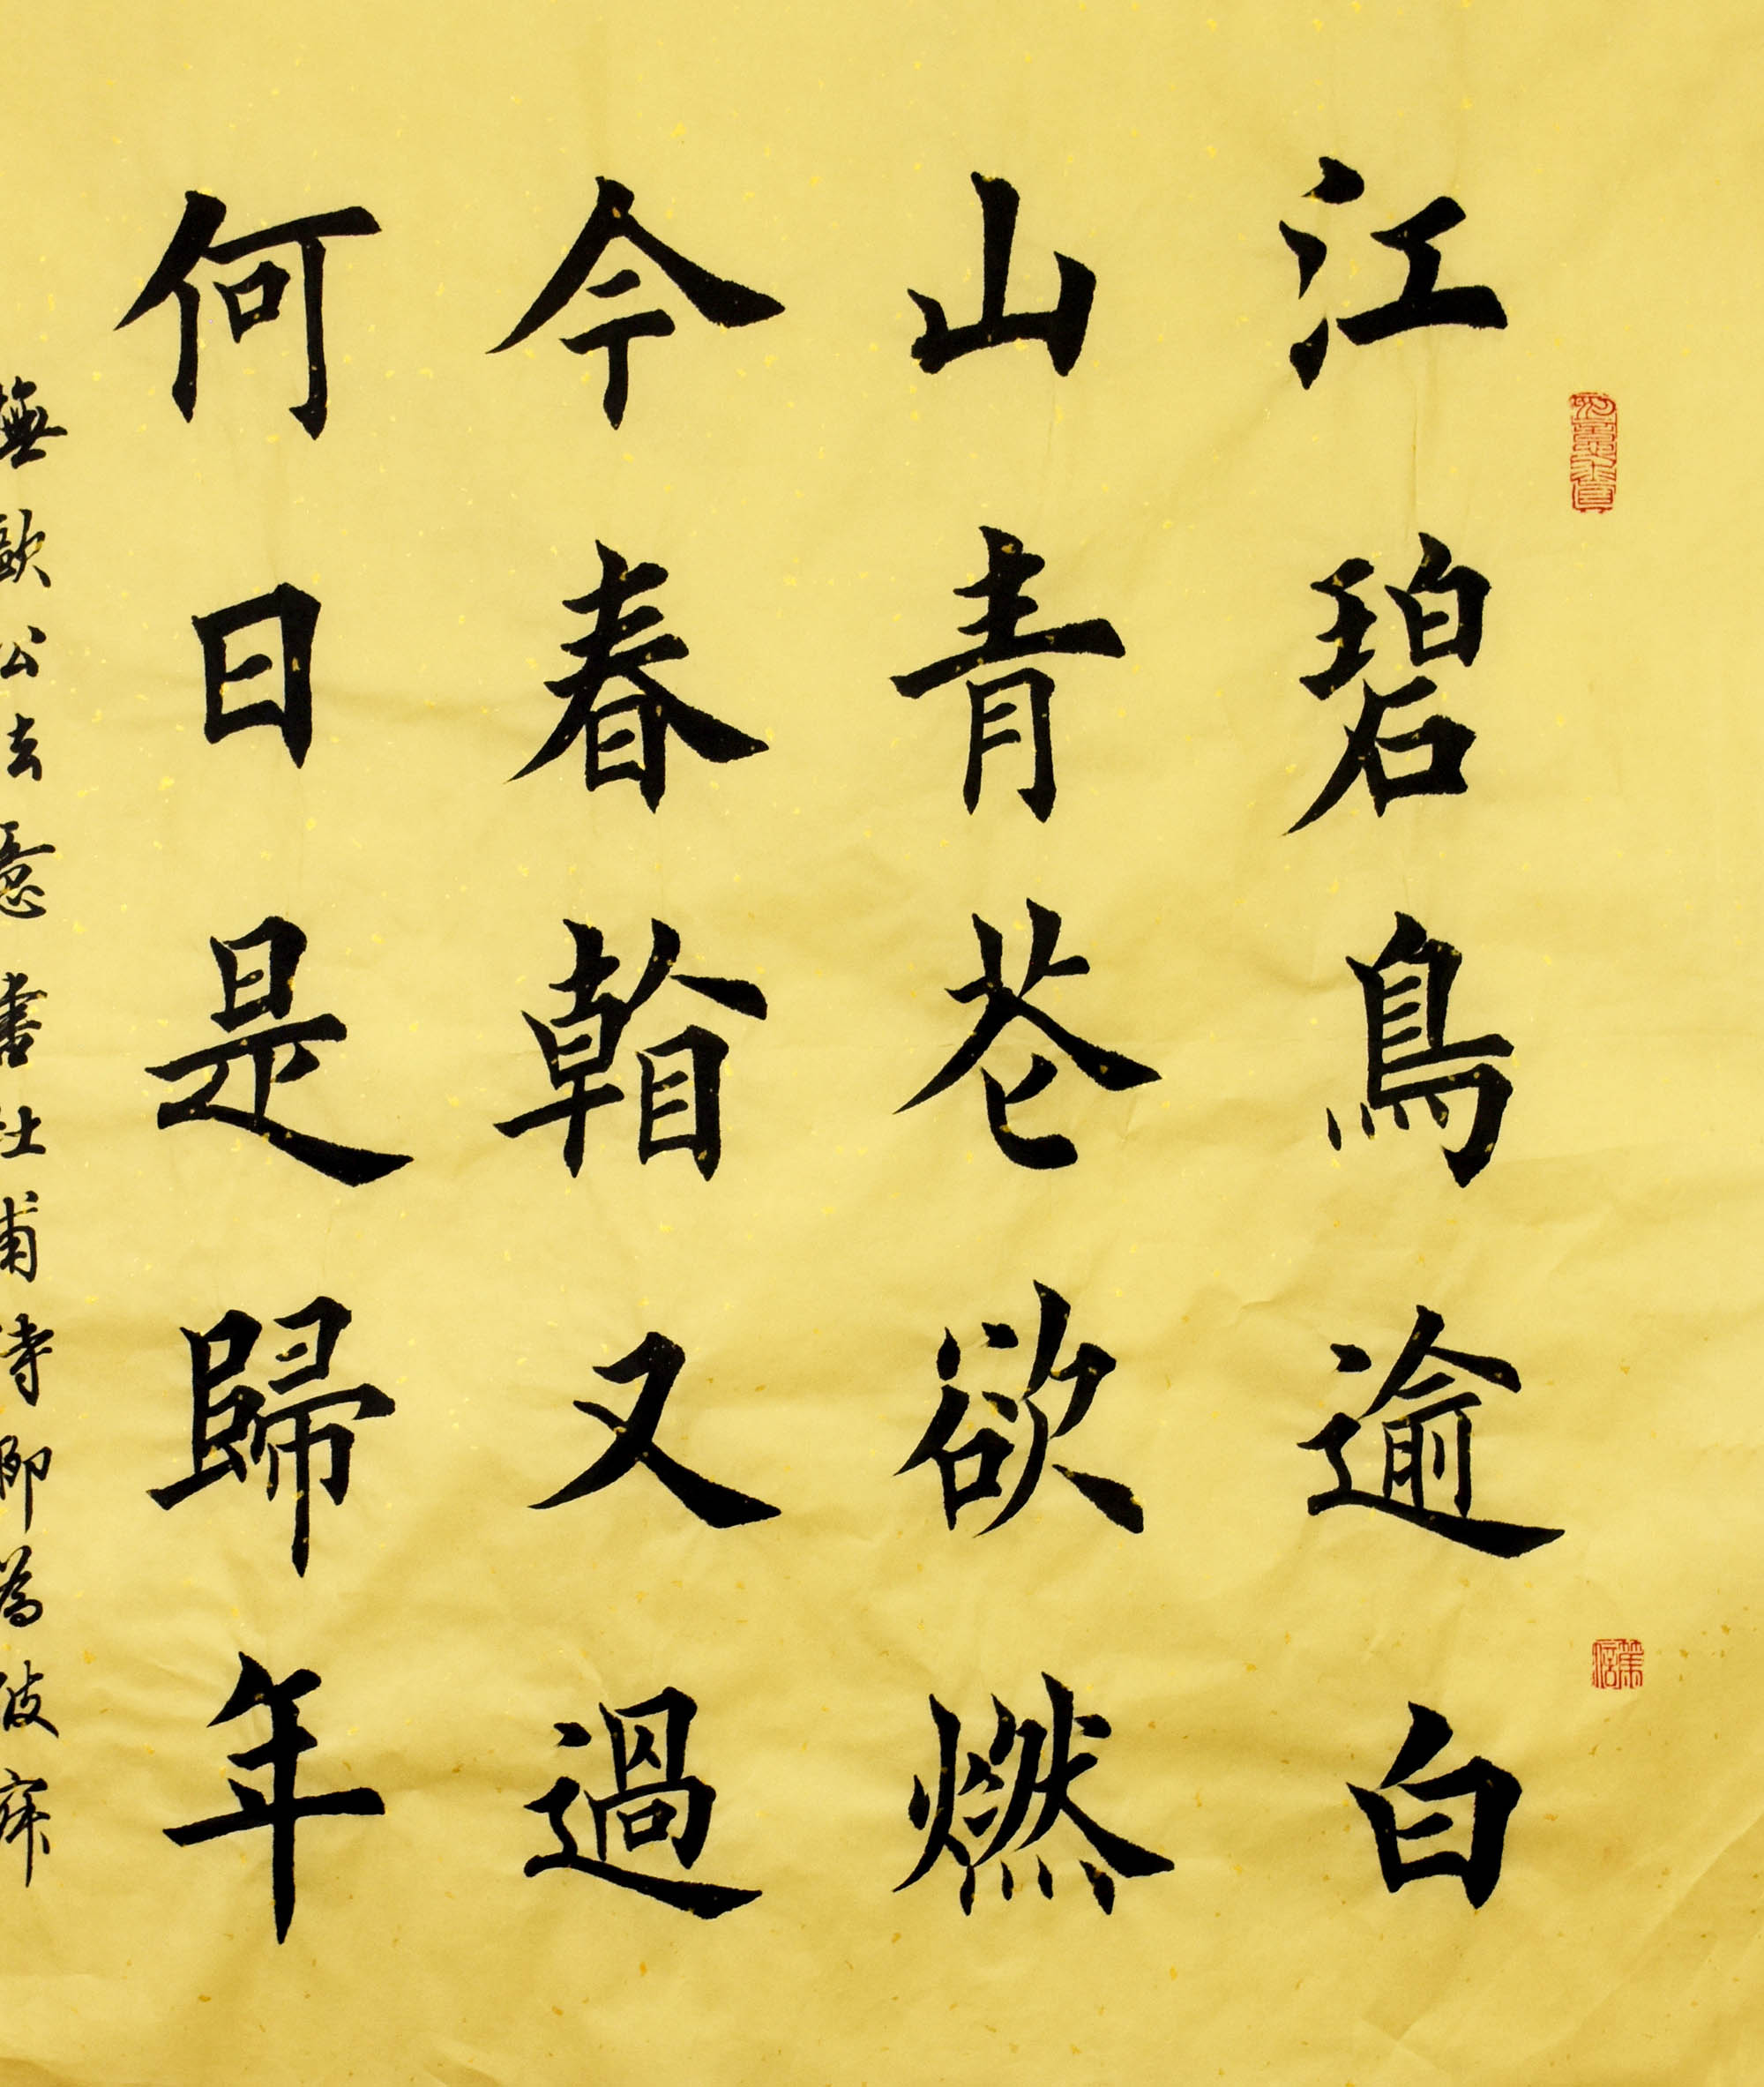 江碧鳥逾白
山青芲欲燃
今春看又過
何日是歸年
歐公法意書杜甫詩聊為